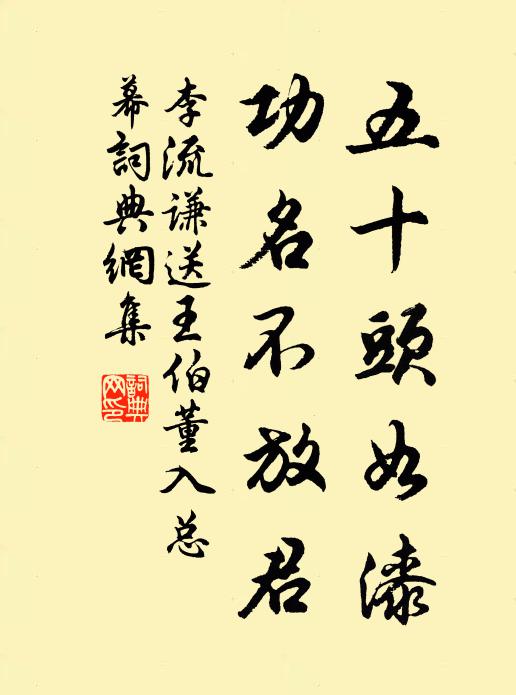 五十頭如漆
功名不放君
李流谦送王伯董入总
幕詞典網集
詞典網印